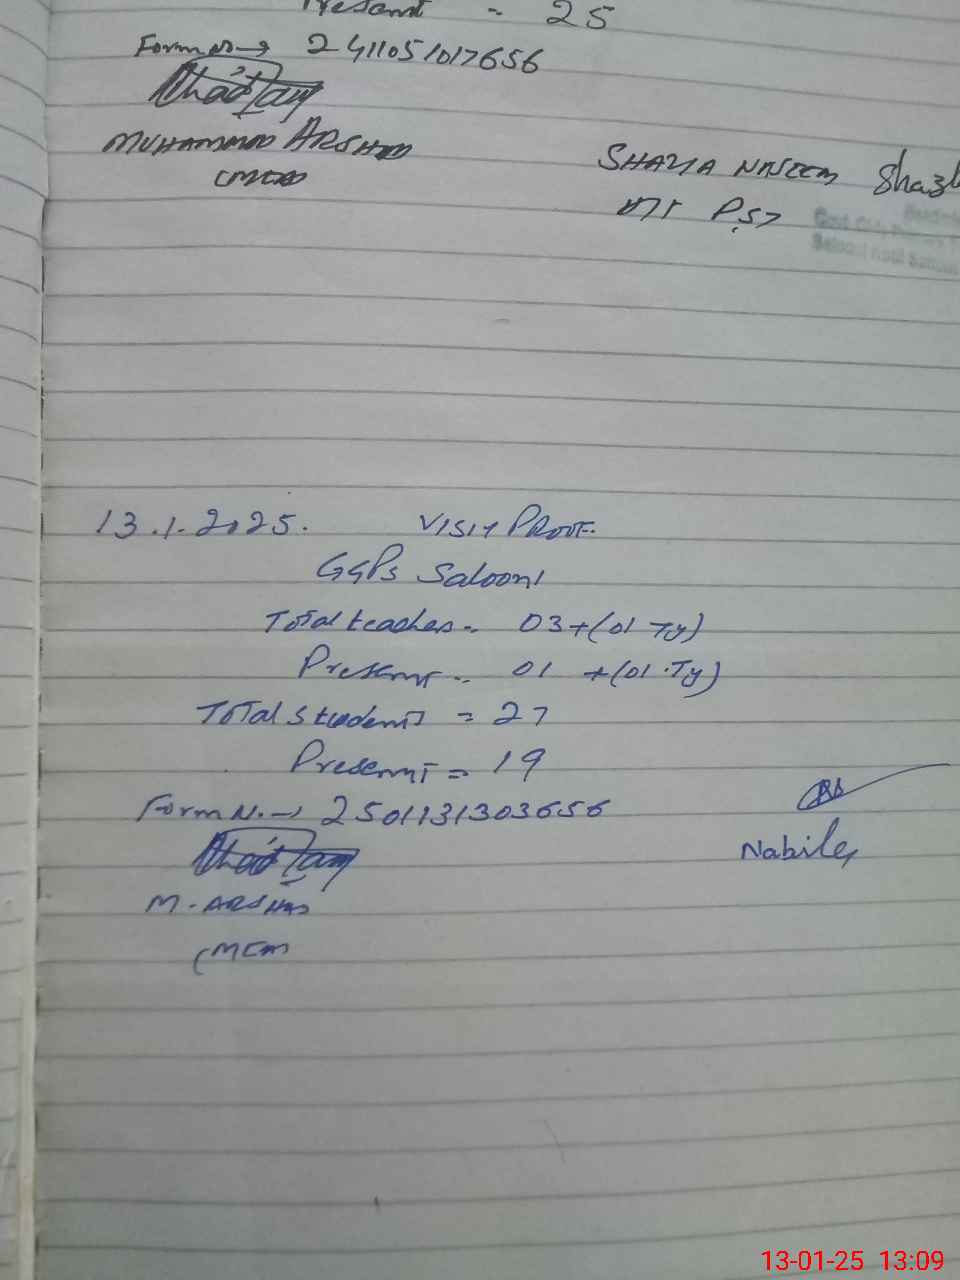 Present = 25
Form No → 2411051017656
MUHAMMAD ARSHAD
SHAZIA NASEEM Shazi
PST
13.1.2025. VISIT PROOF.
GGPS Salooni
Total teacher = 03+(01 Ty)
Present = 01 +(01 Ty)
Total Students = 27
Present = 19
Form N. → 2501131303656
Nabila
M. ARSHAD
(MEA
13-01-25 13:09